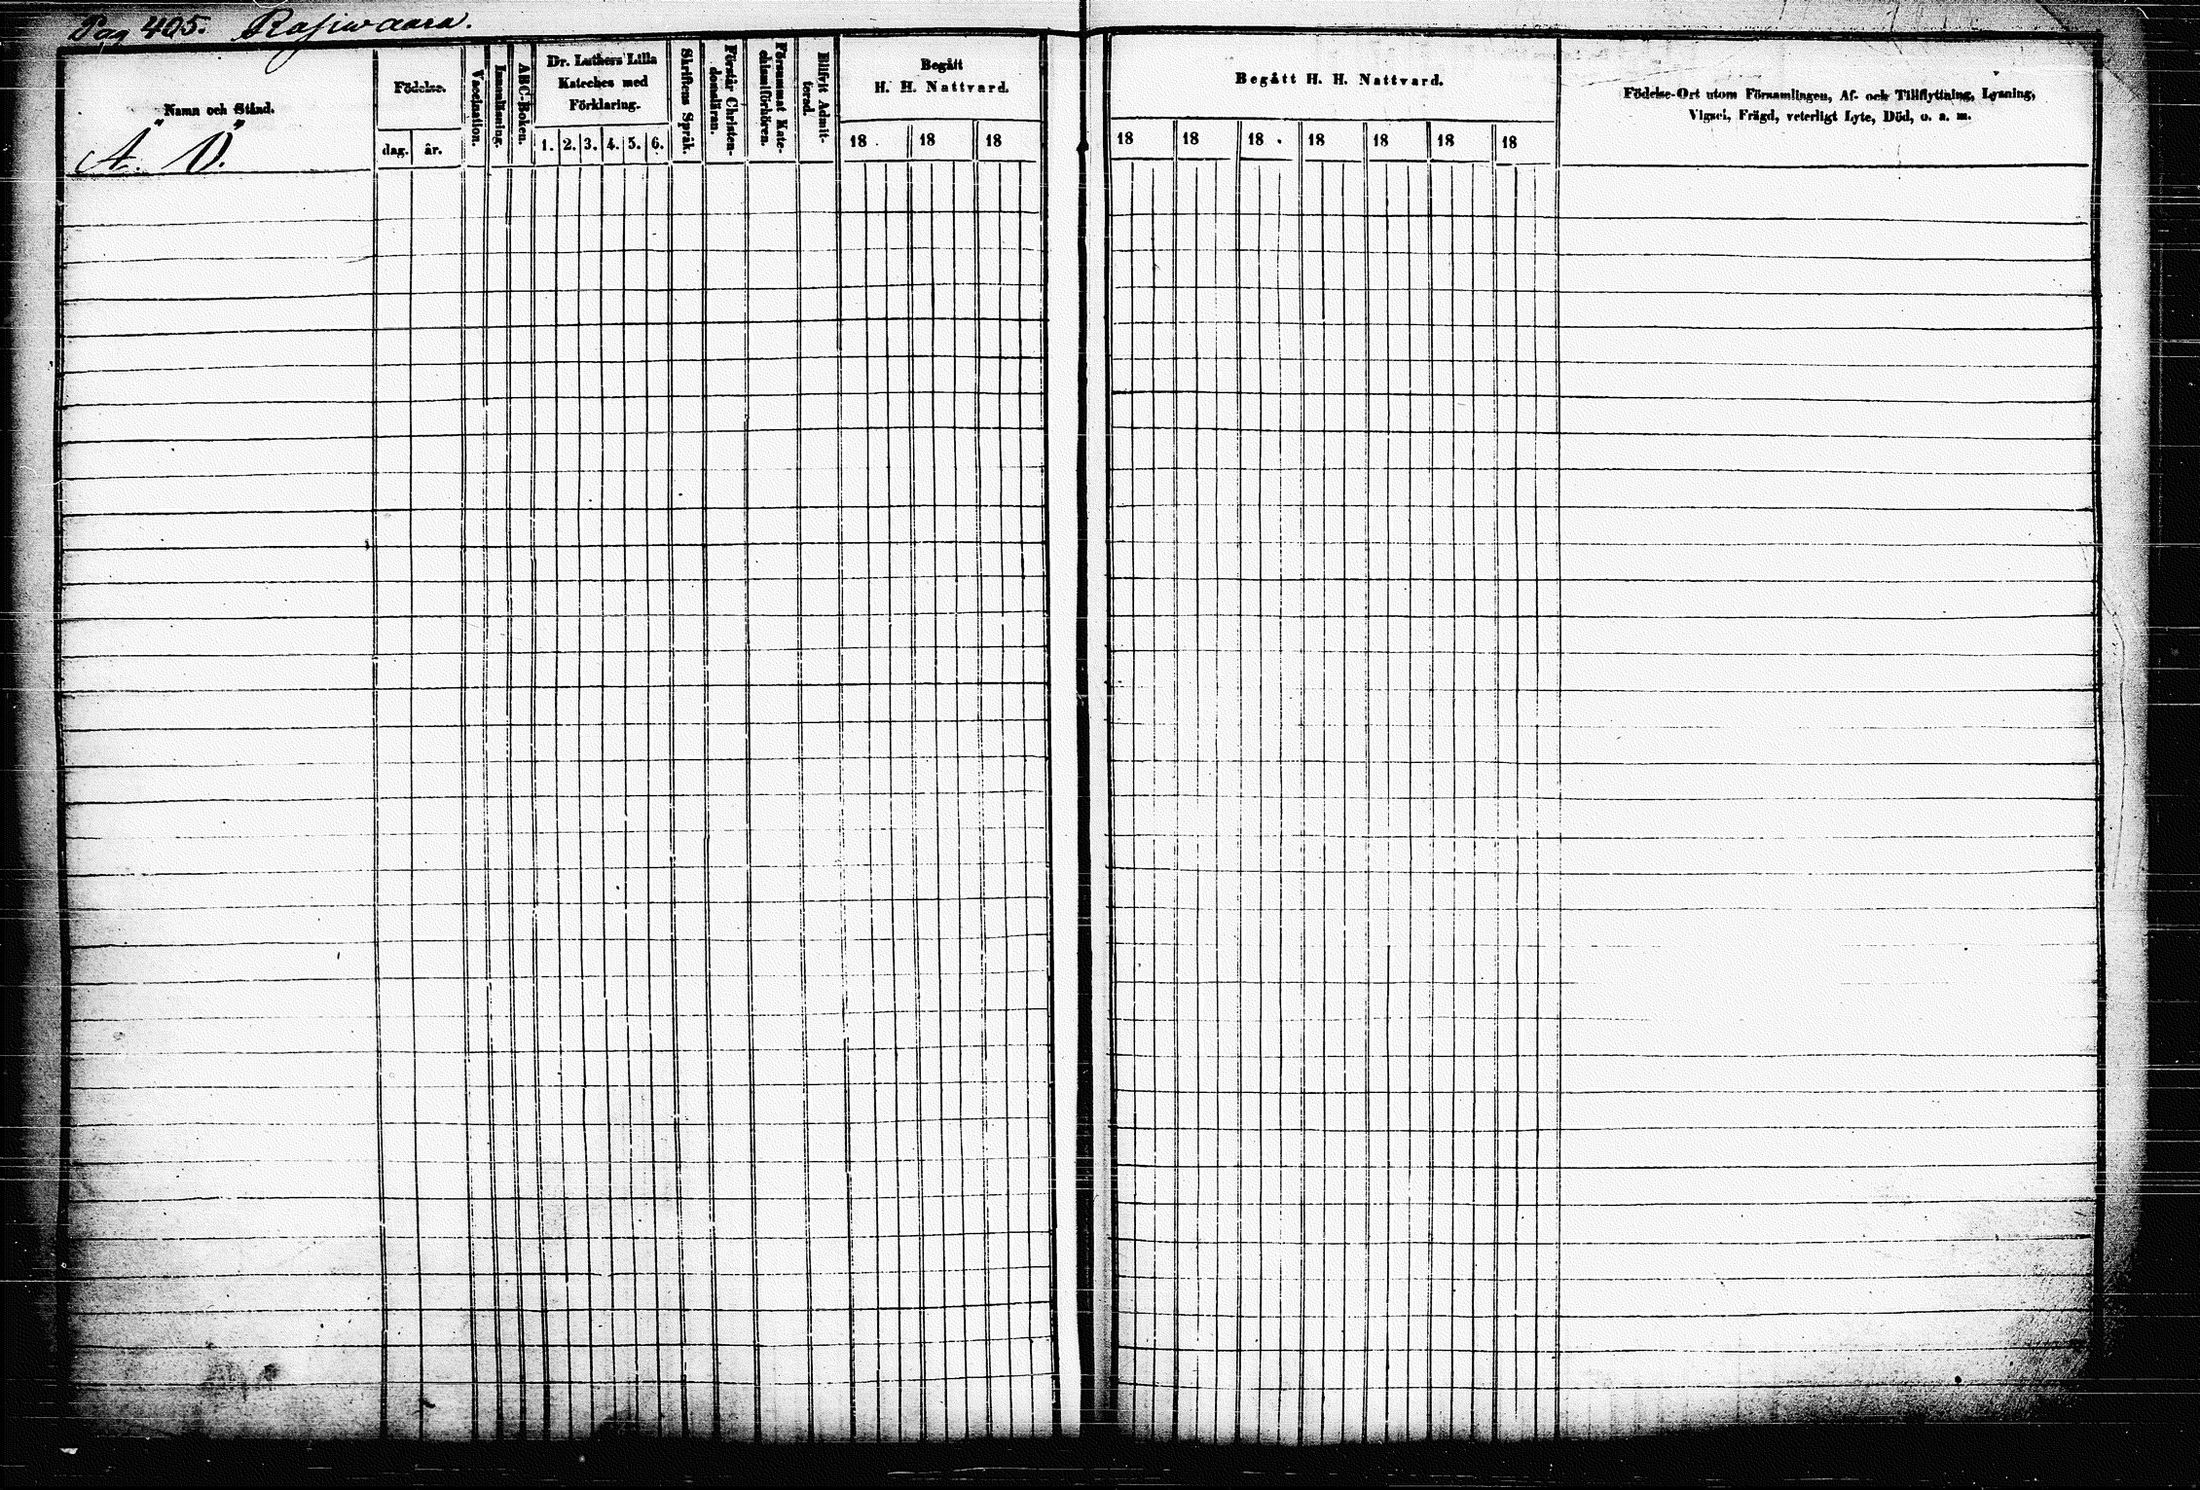 Pag 405. Rasiwaara.
Namn och Stånd.
Ä. Ö.
Födelse.
dag.
år.
Vaccination.
Innanläsning.
ABC-Boken.
Dr. Luthers Lilla
Kateches med
Förklaring.
1. 2. 3. 4. 5. 6.
Skriftens Språk.
Förstår Christen-
domsläran.
Försummat Kate-
chismiförhören.
Blifvit Admit-
terad.
Begått
H. H. Nattvard.
18 18 18
Begått H. H. Nattvard.
18 18 18 18 18 18 18
Födelse-Ort utom Församlingen, Af- och Tillflyttning, Lysning,
Vigsel, Frägd, veterligt Lyte, Död, o. a. m.